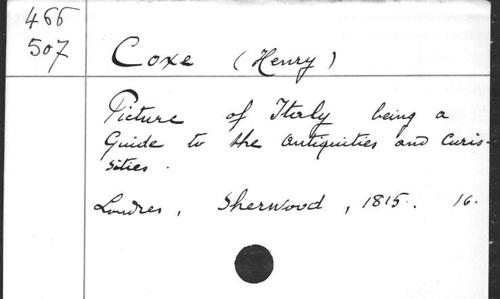 466
507
Coxe (Henry)
Picture of Italy being a
Guide to the antiquities and curio-
sities.
Londres, Sherwood, 1815. 16.